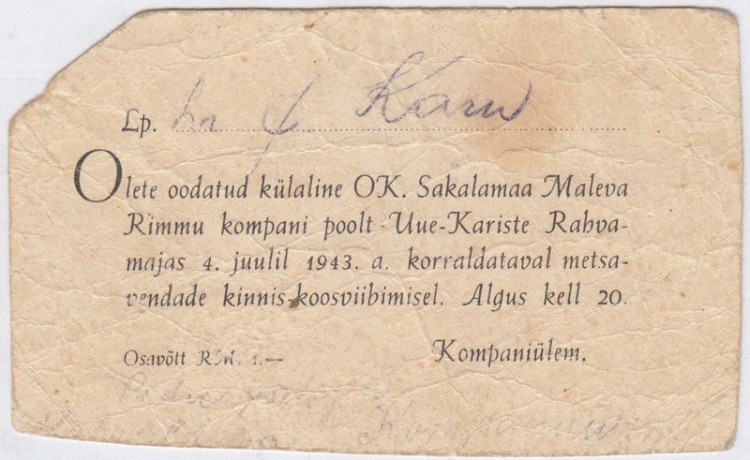 Lp. hr J. Karu
Olete oodatud külaline OK. Sakalamaa Maleva
Rimmu kompani poolt Uue-Kariste Rahva-
majas 4. juulil 1943. a. korraldataval metsa-
vendade kinnis-koosviibimisel. Algus kell 20.
Osavõtt RM. 1.— Kompaniülem.